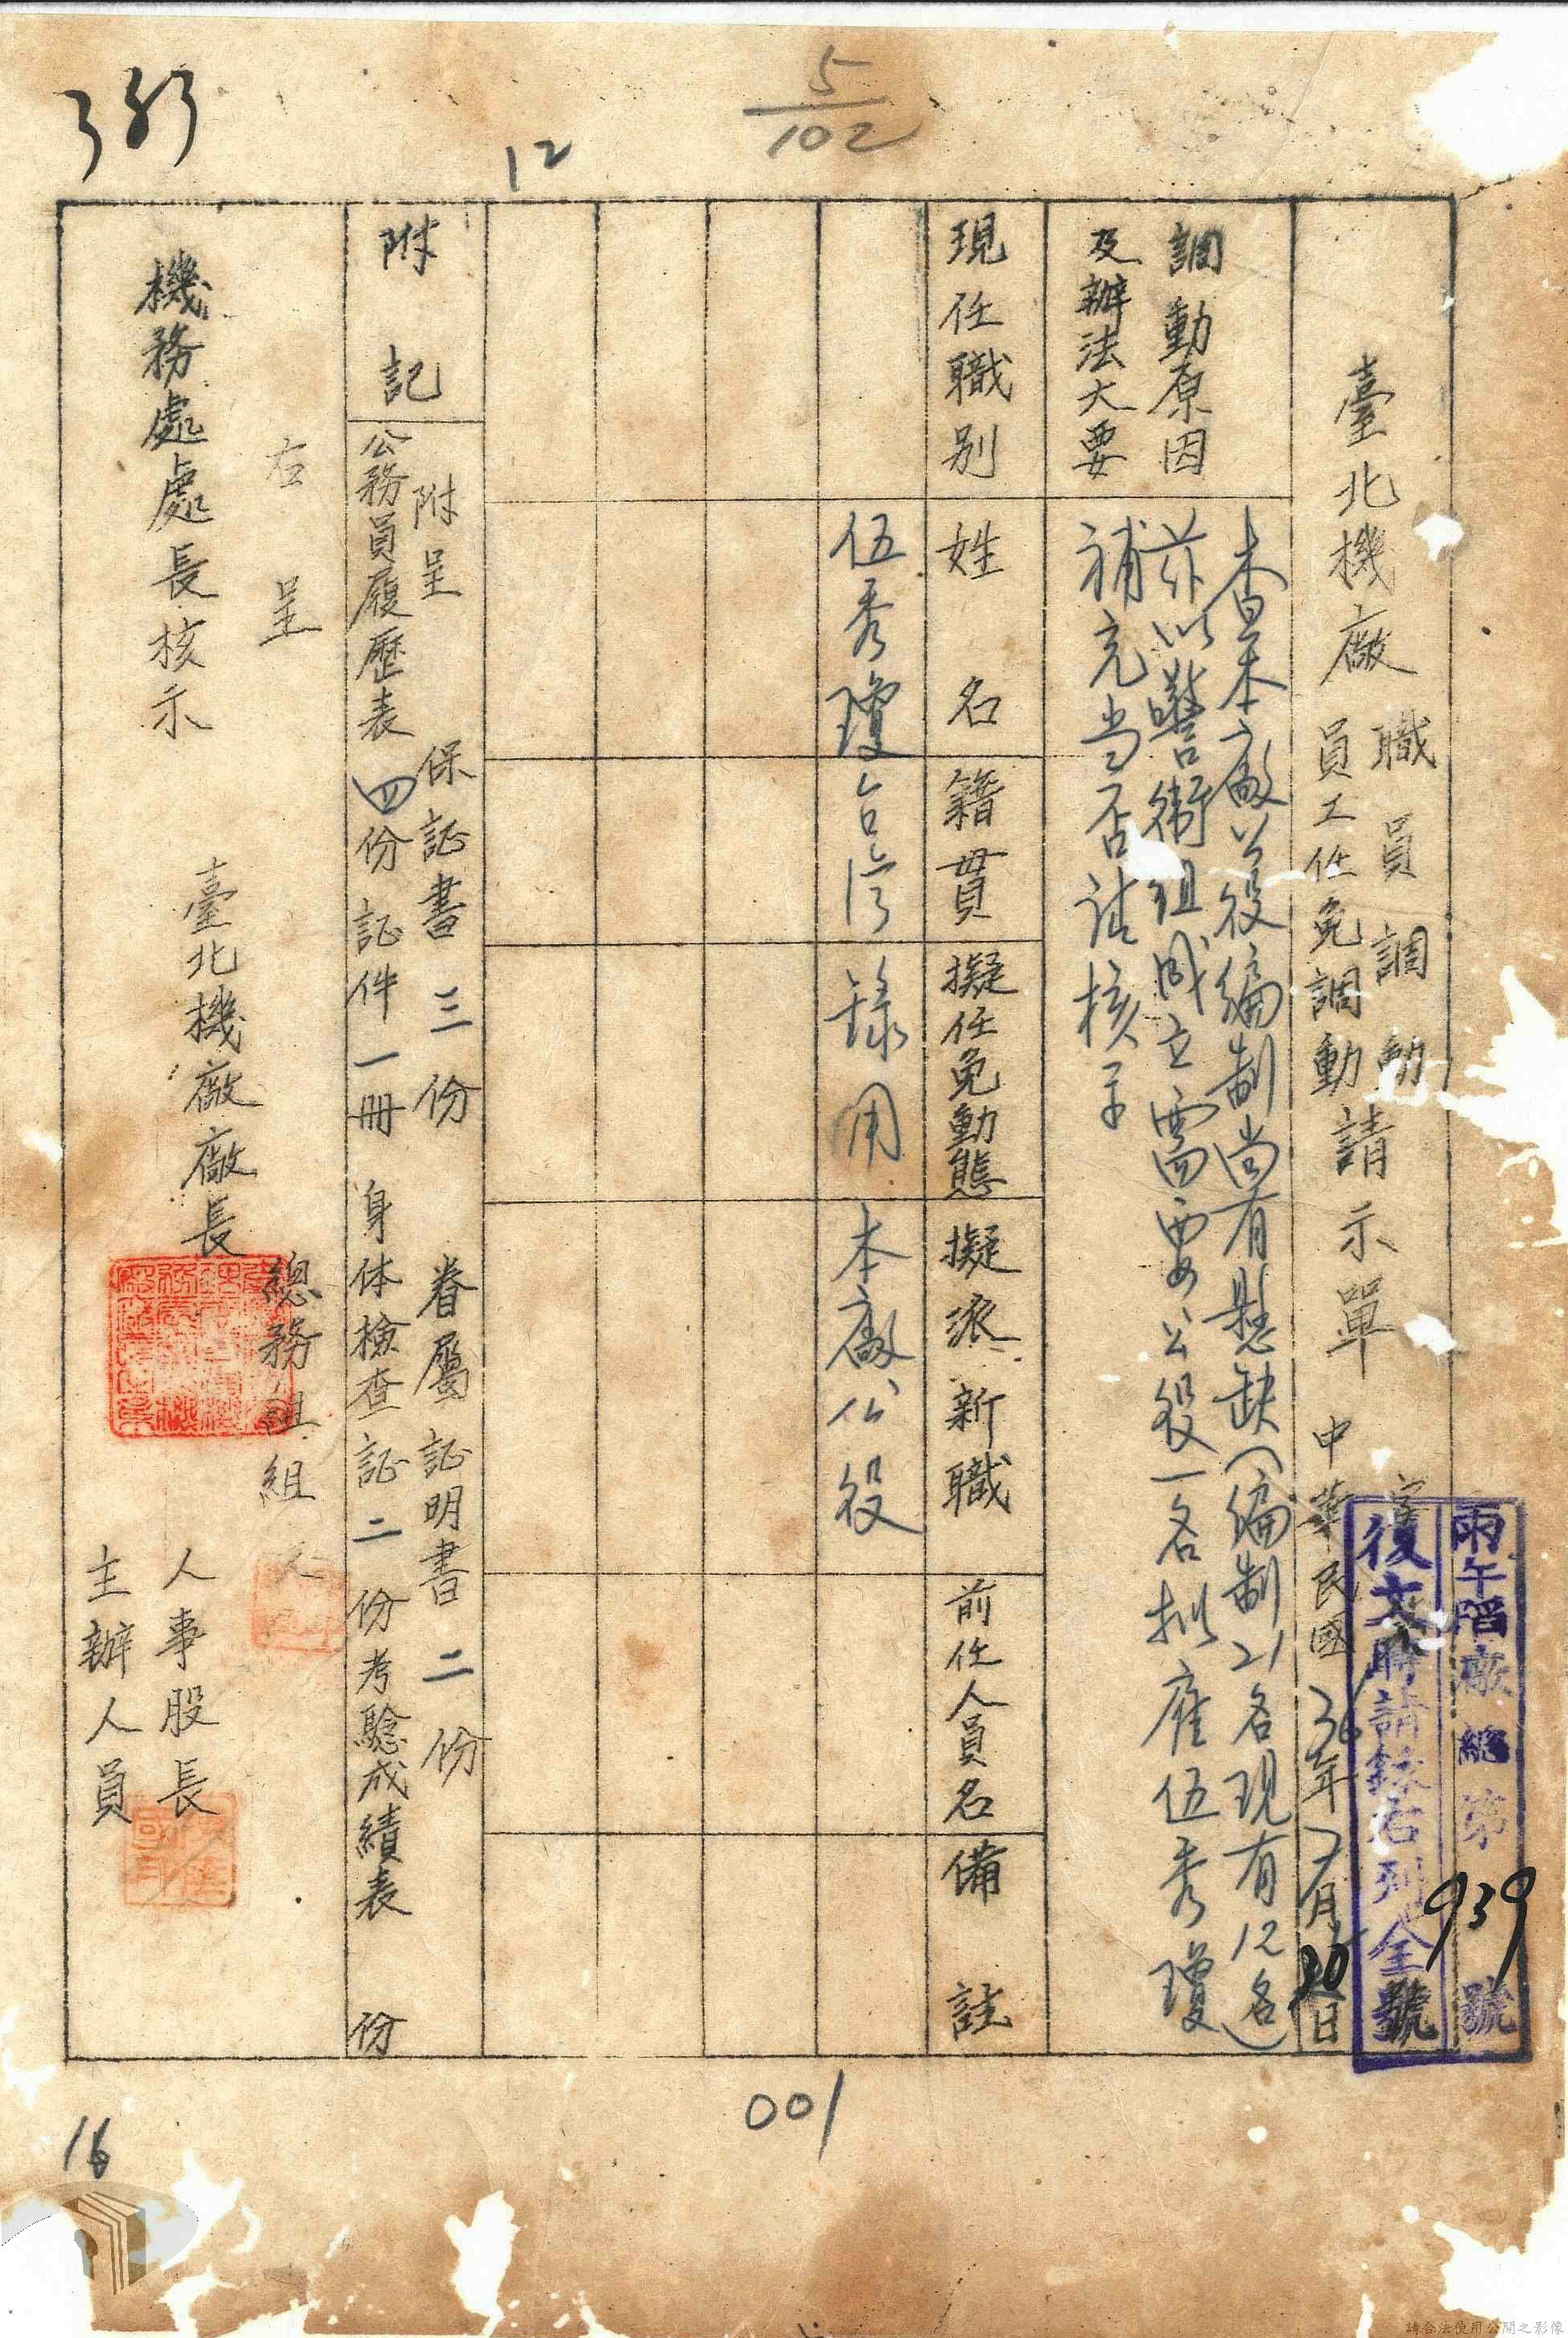 5/102
12
臺北機廠
職員調動
員工任免調動
請示單
中華民國36年7月20日
雨午陷廠總第939號
復文時請錄右列全號
調動原因
及辦法大要
查本廠公役編制尚有懸缺(編制21名現有12名)
茲以警衛組成立需要公役一名拟雇伍秀瓊
補充当否請核示
現任職別
姓名
籍貫
擬任免動態
擬派新職
前任人員名
備註
伍秀瓊
台湾
錄用
本廠公役
附記
附呈
保証書三份
眷屬証明書二份
公務員履歷表四份
証件一冊
身体檢查証二份
考驗成績表 份
右呈
機務處處長核示
臺北機廠廠長
總務組組
人事股長
主辦人員
001
16
請合法使用公開之影像